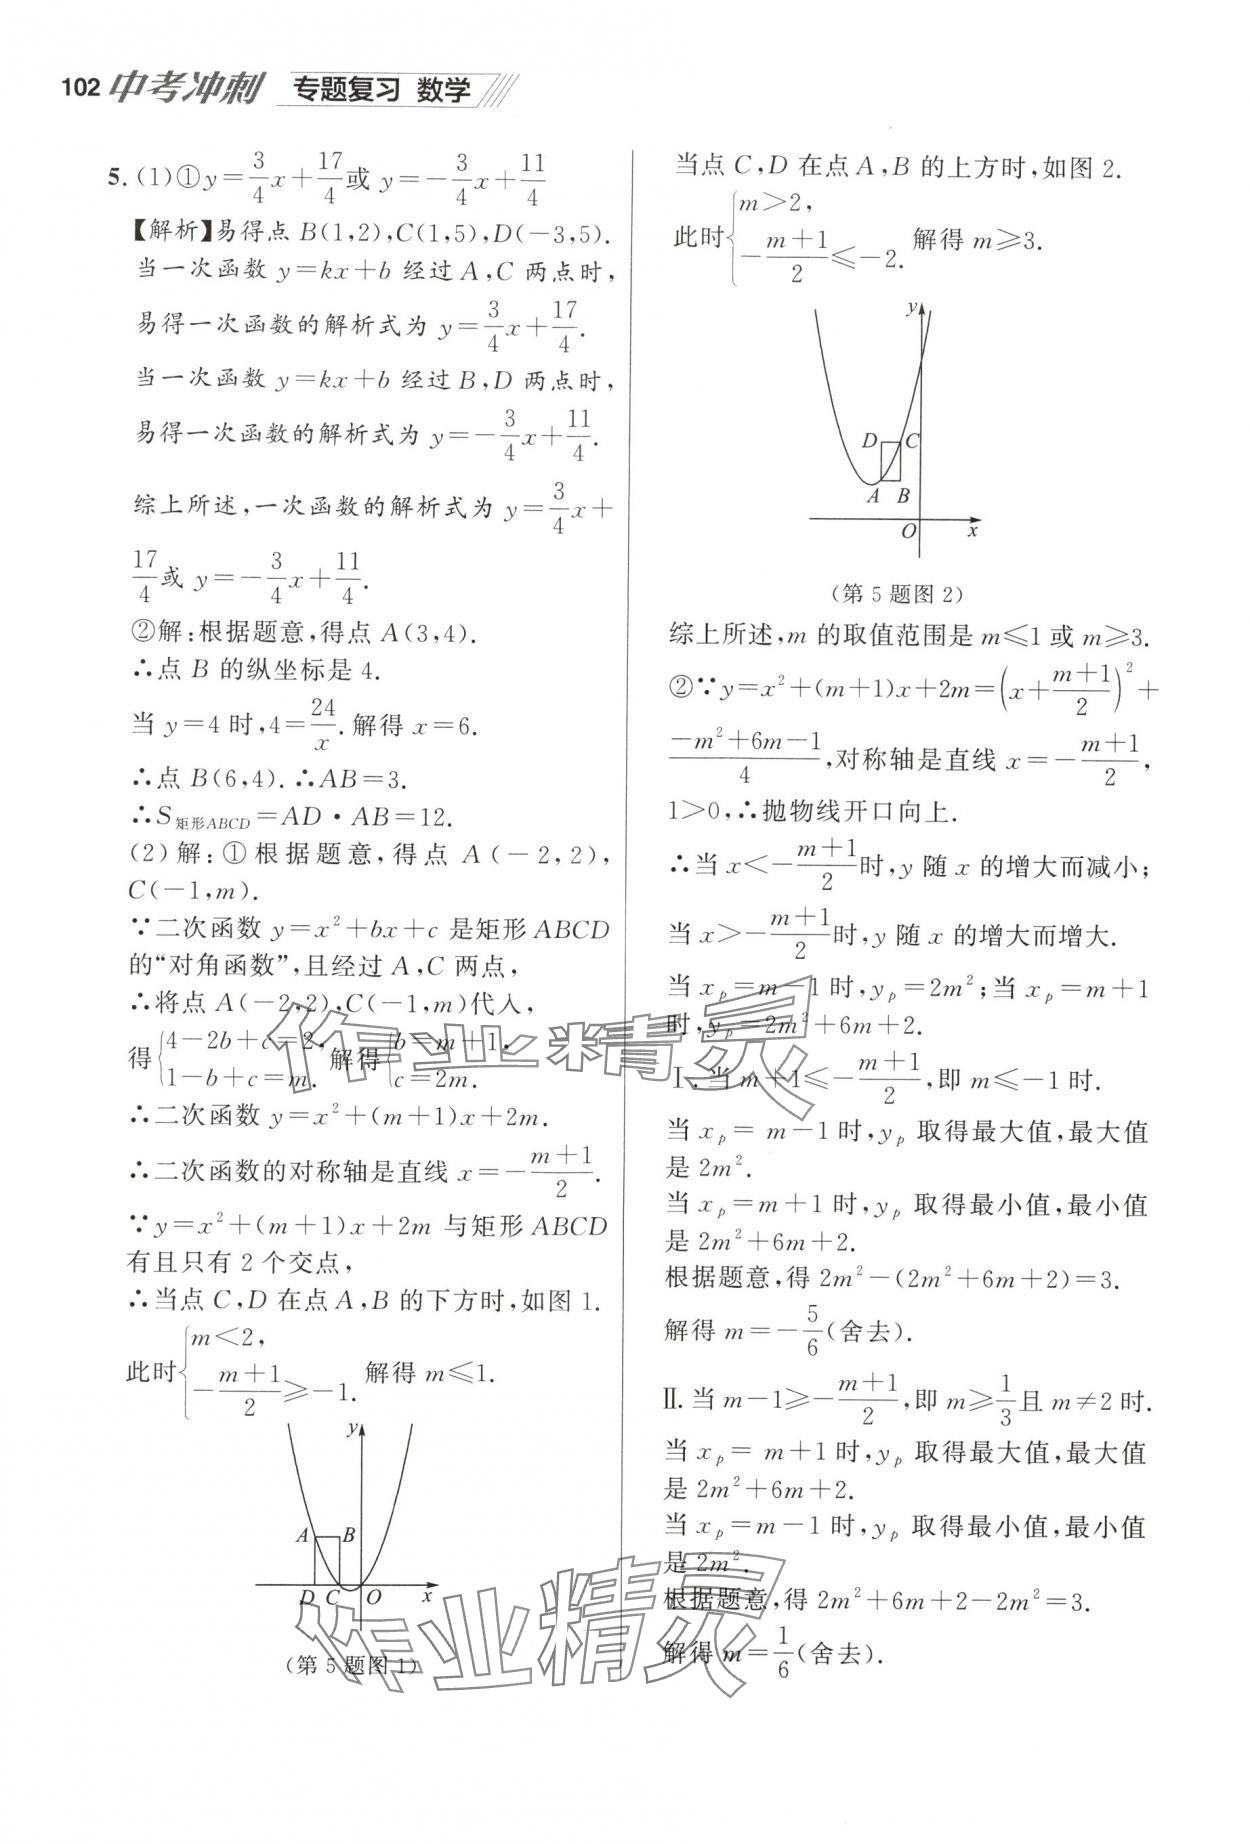 102 中考冲刺 专题复习 数学
5. (1)①y=3/4x+17/4或 y=-3/4x+11/4
【解析】易得点 B(1,2),C(1,5),D(-3,5).
当一次函数 y=kx+b 经过 A,C 两点时,
易得一次函数的解析式为 y=3/4x+17/4.
当一次函数 y=kx+b 经过 B,D 两点时,
易得一次函数的解析式为 y=-3/4x+11/4.
综上所述,一次函数的解析式为 y=3/4x+
17/4或 y=-3/4x+11/4.
②解:根据题意,得点 A(3,4).
∴点 B 的纵坐标是 4.
当 y=4 时,4=24/x.解得 x=6.
∴点 B(6,4).∴AB=3.
∴S矩形ABCD=AD·AB=12.
(2)解:①根据题意,得点 A(-2,2),
C(-1,m).
∵二次函数 y=x²+bx+c 是矩形 ABCD
的“对角函数”,且经过 A,C 两点,
∴将点 A(-2,2),C(-1,m)代入,
得{4-2b+c=2, 1-b+c=m. 解得{b=m+1, c=2m.
∴二次函数 y=x²+(m+1)x+2m.
∴二次函数的对称轴是直线 x=-(m+1)/2.
∵y=x²+(m+1)x+2m 与矩形 ABCD
有且只有 2 个交点,
∴当点 C,D 在点 A,B 的下方时,如图 1.
此时{m<2, -(m+1)/2≥-1. 解得 m≤1.
y
A B
D C O x
(第 5 题图 1)
当点 C,D 在点 A,B 的上方时,如图 2.
此时{m>2, -(m+1)/2≤-2. 解得 m≥3.
y
D C
A B
O x
(第 5 题图 2)
综上所述,m 的取值范围是 m≤1 或 m≥3.
②∵y=x²+(m+1)x+2m=(x+(m+1)/2)²+
(-m²+6m-1)/4,对称轴是直线 x=-(m+1)/2,
1>0,∴抛物线开口向上.
∴当 x<-(m+1)/2时,y 随 x 的增大而减小;
当 x>-(m+1)/2时,y 随 x 的增大而增大.
当 xₚ=m-1时,yₚ=2m²;当 xₚ=m+1
时,yₚ=2m²+6m+2.
Ⅰ.当 m+1≤-(m+1)/2,即 m≤-1 时.
当 xₚ=m-1时,yₚ 取得最大值,最大值
是 2m².
当 xₚ=m+1时,yₚ 取得最小值,最小值
是 2m²+6m+2.
根据题意,得 2m²-(2m²+6m+2)=3.
解得 m=-5/6(舍去).
Ⅱ.当 m-1≥-(m+1)/2,即 m≥1/3且 m≠2 时.
当 xₚ=m+1时,yₚ 取得最大值,最大值
是 2m²+6m+2.
当 xₚ=m-1时,yₚ 取得最小值,最小值
是 2m².
根据题意,得 2m²+6m+2-2m²=3.
解得 m=1/6(舍去).
作业精灵
作业精灵